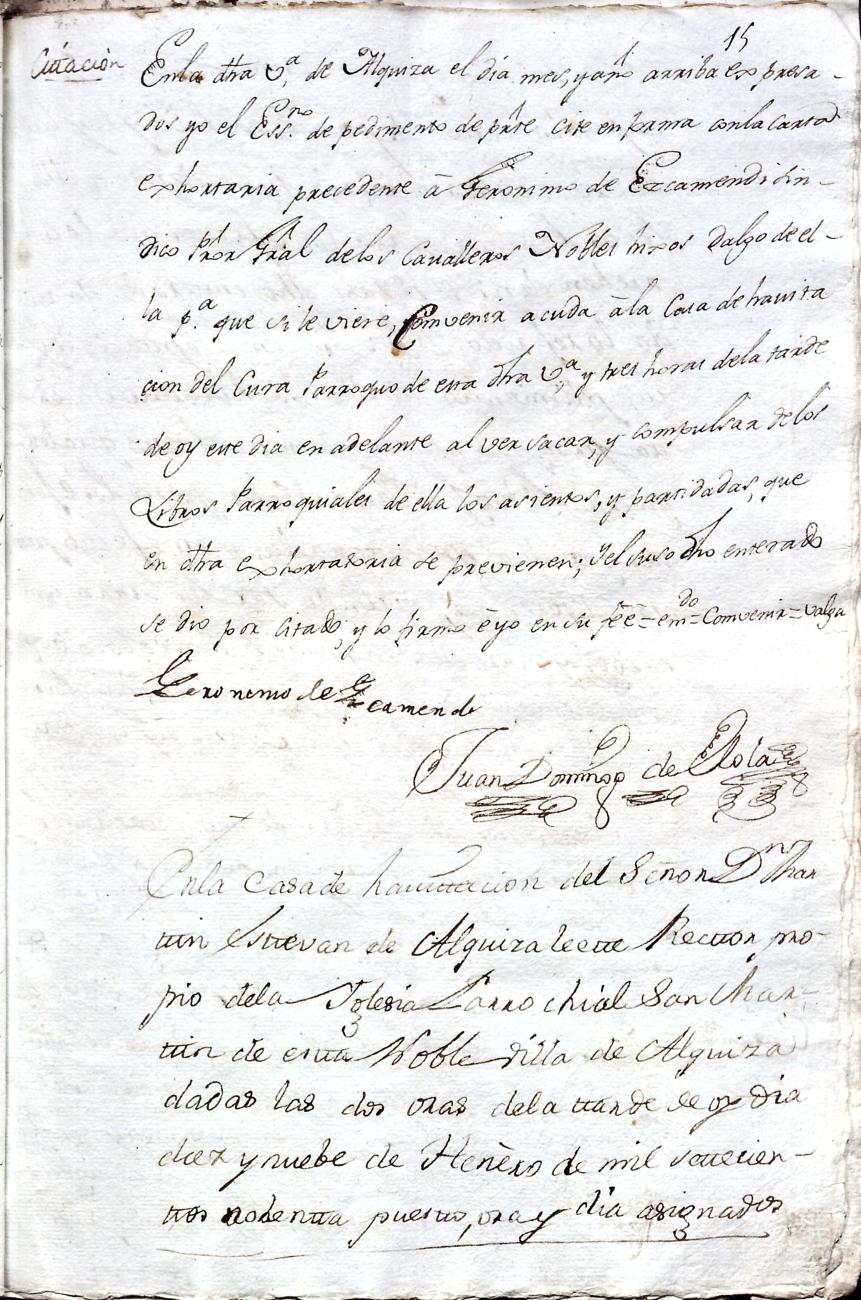 15
Citación
En la dha Vª de Alquiza el dia mes, y año arriba expresa-
dos yo el Essno de pedimento de prte cite en forma con la carta
exhortaria precedente â Geronimo de Ezcamendi Sin-
dico Pror Gral de los Cavalleros Nobles hixos Dalgo de el-
la pª que si le viere, Convenir acuda â la Casa de havita
cion del Cura Parroquo de esta dha Vª, y tres horas de la tarde
de oy este dia en adelante al ver sacar, y compulsar de los
Libros Parroquiales de ella los asientos, y partidadas, que
en dha exhortatoria se previenen; y el suso dho enterado
se dio por citado, y lo firmó ê yo en su feê = emdo = Convenir = valga
Geronimo de Ezcamendi
Juan Domingo de Elola
En la Casa de havittacion del Señor Dn Mar
ttin Esttevan de Alquizaleette Recttor pro-
pio de la Iglesia Parrochial San Mar-
ttin de estta Noble Villa de Alquiza
dadas las dos oras de la ttarde de oy dia
diez y nuebe de Henero de mil settecien-
ttos nobentta puestto, ora y dia asignados